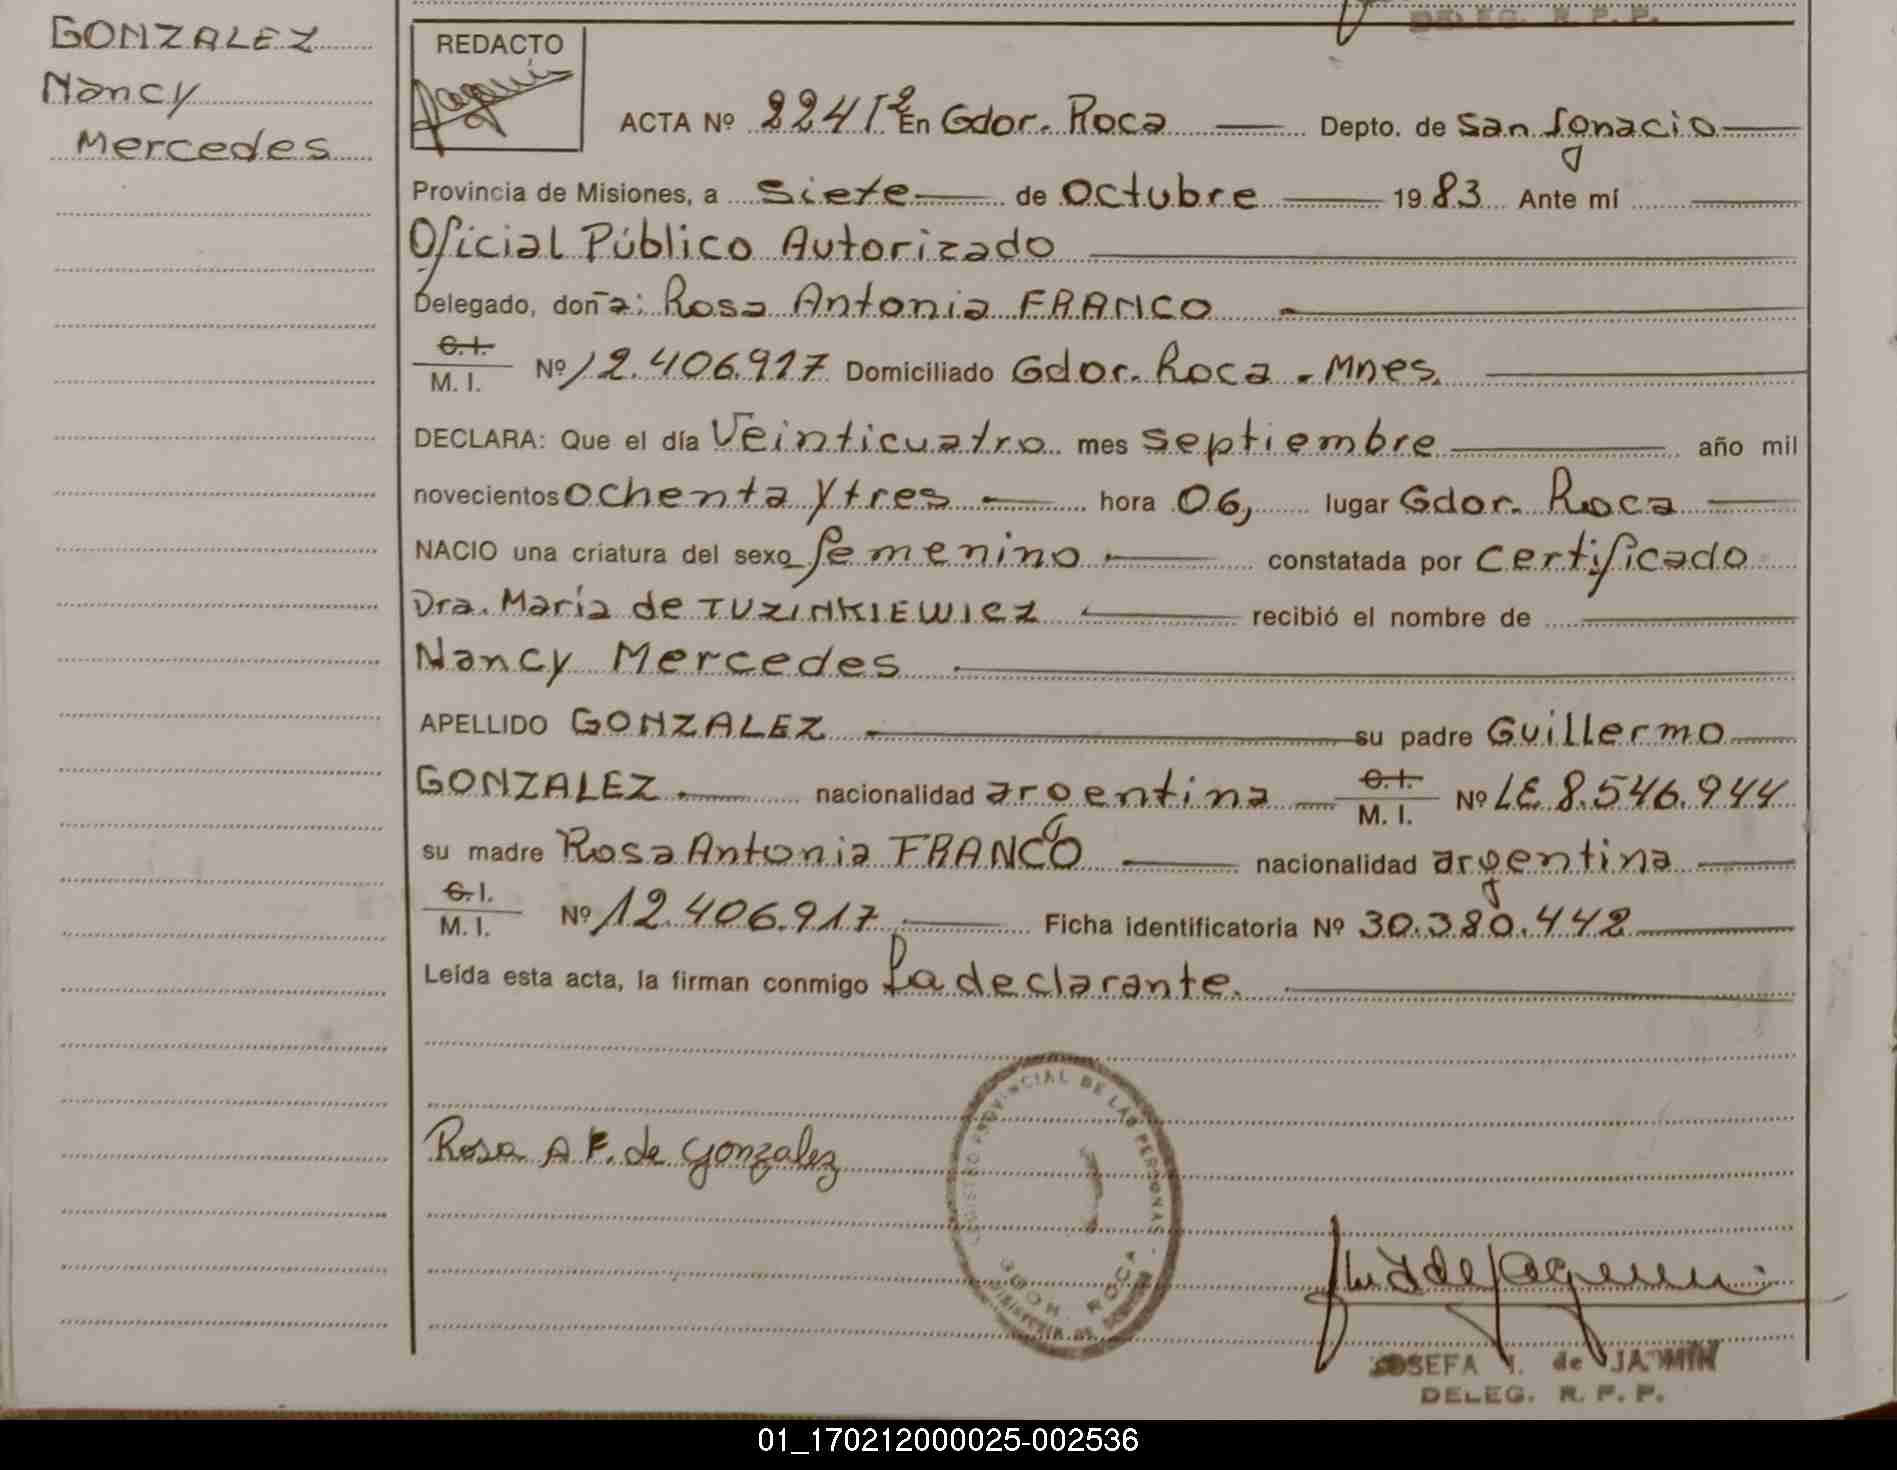 DELEG. R. P. P.
GONZALEZ
Nancy
Mercedes
REDACTO
ACTA Nº 224 Iº En Gdor. Roca Depto. de San Ignacio
Provincia de Misiones, a siete de Octubre 1983 Ante mí
Oficial Público Autorizado
Delegado, doña: Rosa Antonia FRANCO
C.I. / M. I. Nº 12.406.917 Domiciliado Gdor. Roca - Mnes.
DECLARA: Que el día Veinticuatro mes septiembre año mil
novecientos ochenta y tres hora 06, lugar Gdor. Roca
NACIO una criatura del sexo femenino constatada por certificado
Dra. María de TUZINKIEWICZ recibió el nombre de
Nancy Mercedes
APELLIDO GONZALEZ su padre Guillermo
GONZALEZ nacionalidad argentina C.I. / M. I. Nº LE 8.546.944
su madre Rosa Antonia FRANCO nacionalidad argentina
C.I. / M. I. Nº 12.406.917 Ficha identificatoria Nº 30.380.442
Leída esta acta, la firman conmigo La declarante.
REGISTRO PROVINCIAL DE LAS PERSONAS
Rosa A F. de Gonzalez
GDOR. ROCA
JOSEFA I. de
DELEG. R. P. P.
01_170212000025-002536